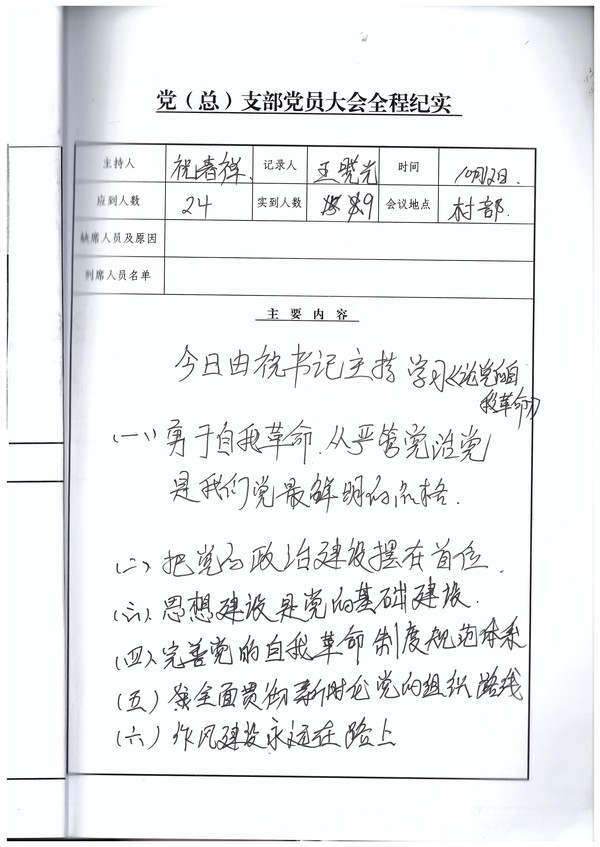 党（总）支部党员大会全程纪实
主持人 祝春祥 记录人 王晓光 时间 10月12日.
应到人数 24 实到人数 19 会议地点 村部.
缺席人员及原因
列席人员名单
主要内容
今日由祝书记主持学习《论党的自
我革命》
(一)勇于自我革命.从严管党治党
是我们党最鲜明的品格.
(二)把党的政治建设摆在首位.
(三)思想建设是党的基础建设.
(四)完善党的自我革命制度规范体系
(五)全面贯彻新时代党的组织路线
(六)作风建设永远在路上